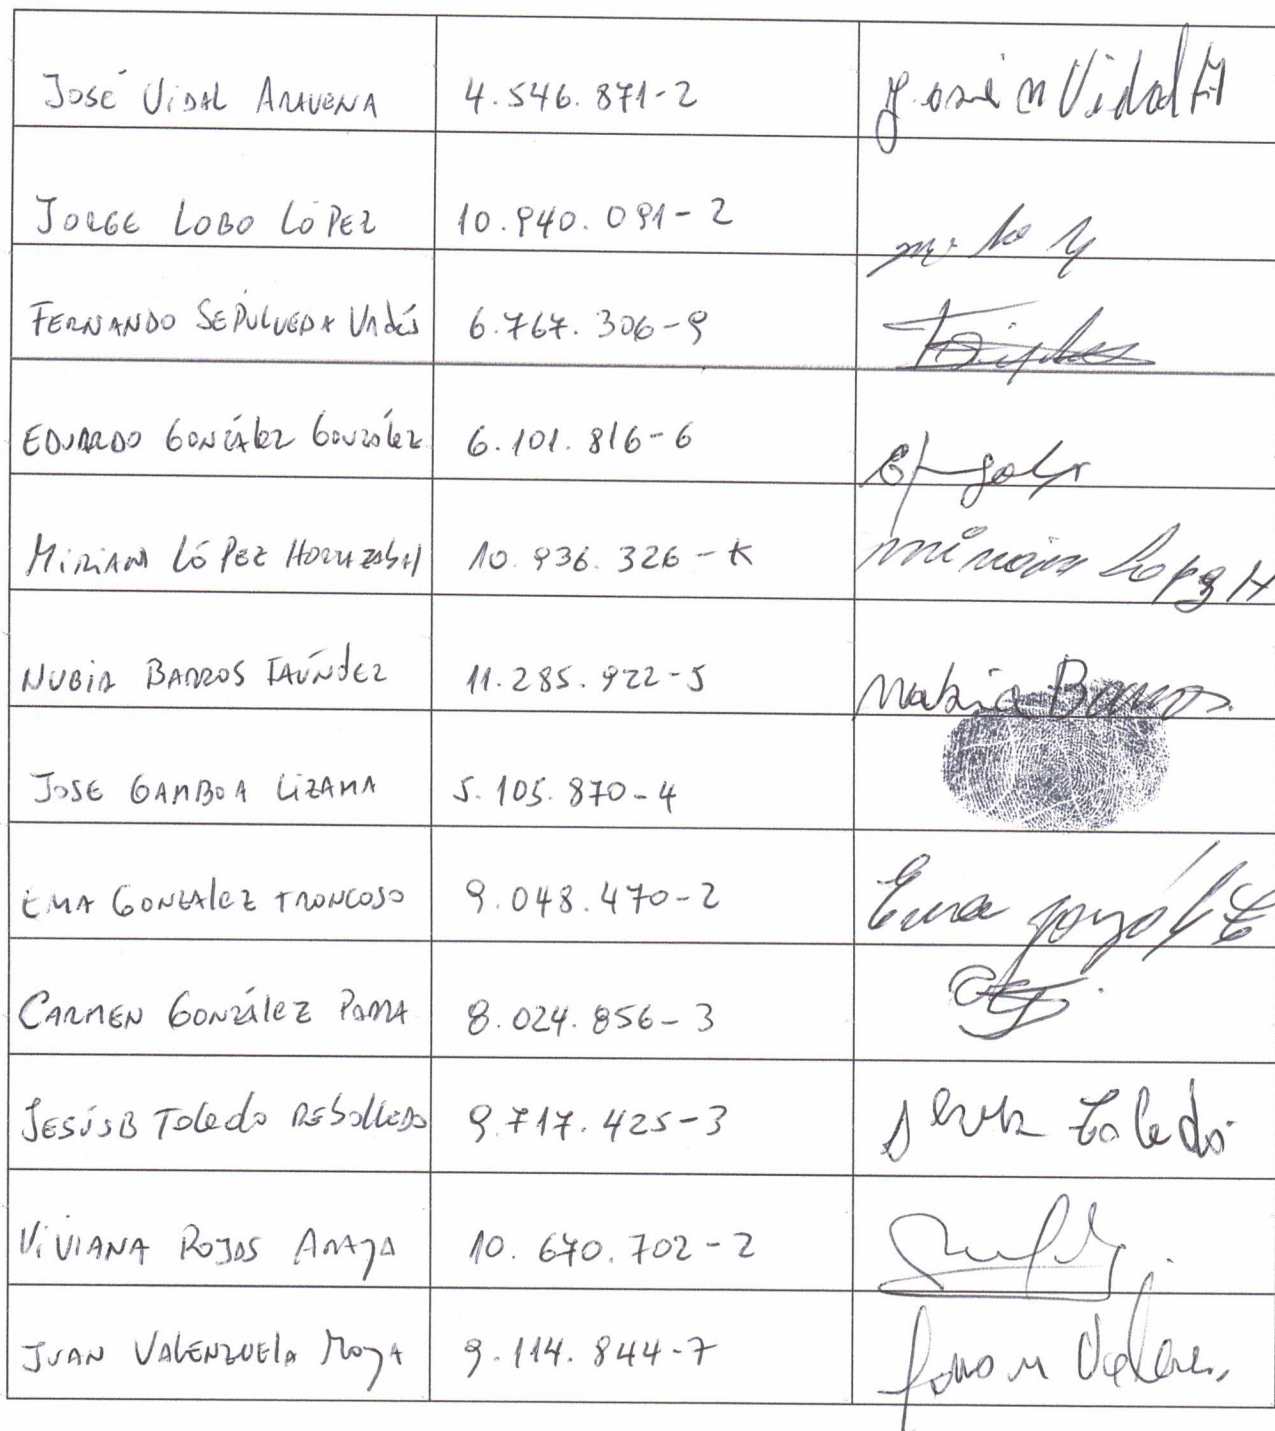 José Vidal Aravena 4.546.871-2 José M Vidal A
Jorge Lobo López 10.940.091-2
Fernando Sepúlveda Valdés 6.767.306-9
Eduardo González González 6.101.816-6
Miriam López Hormazabal 10.936.326-K Miriam Lopez H
Nubia Barros Faúndez 11.285.922-5 Nubia Barros
Jose Gamboa Lizama 5.105.870-4
Ema Gonzalez Troncoso 9.048.470-2 Ema
Carmen González Parra 8.024.856-3
Jesús B Toledo Rebolledo 9.717.425-3 Toledo
Viviana Rojas Araya 10.670.702-2
Juan Valenzuela Moya 9.114.844-7 Juan